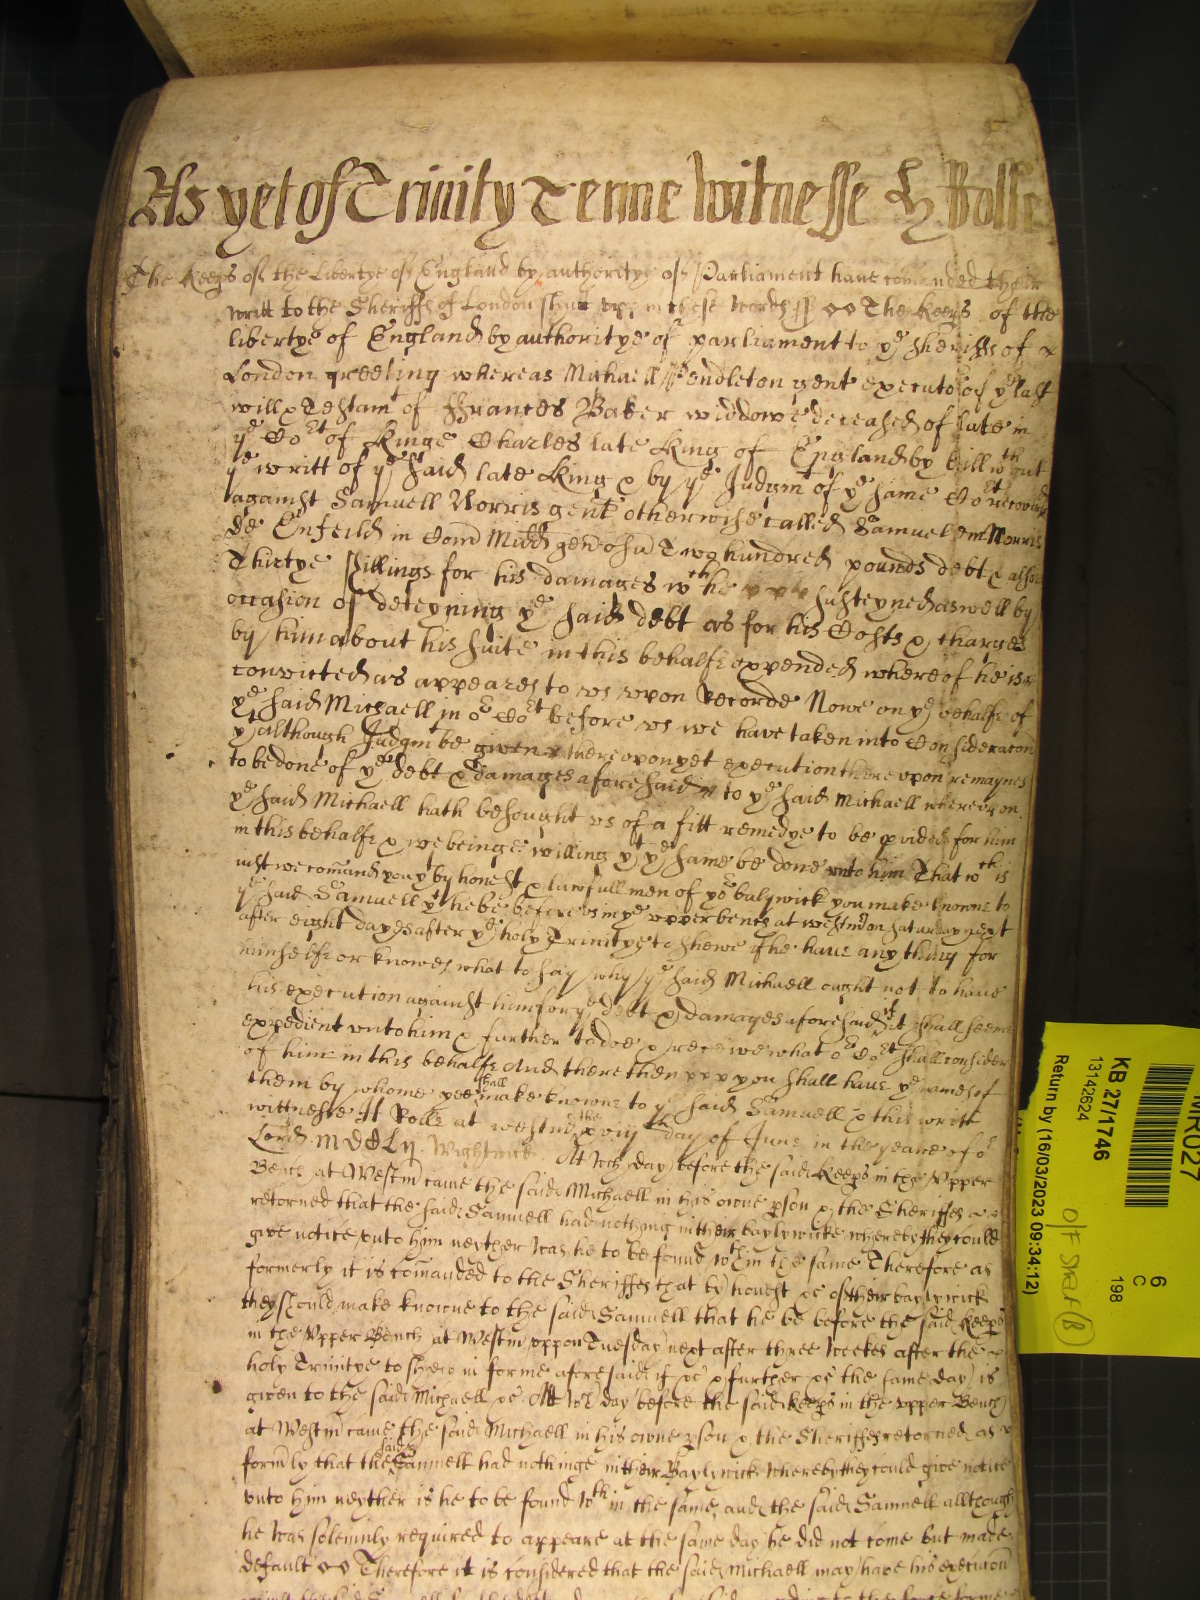 As yet of Trinity Terme Witnesse H Rolle
The Keeps of the Libertye of England by authoritye of Parliament have comanded their
writt to the Sheriffs of London shutt upp in these words ss The Keeps of the
libertye of England by authoritye of parliament to ye sheriffs of
London greeting whereas Michaell Pendleton gent executor of ye last
will & Testamt of Frances Baker widdowe deceased of late in
ye Cort of Kinge Charles late King of England by bill wthout
ye writt of ye said late King & by ye Judgmt of ye same Cort recovered
against Samuell Norris gent otherwise called Samuel Norris
de Enfeild in Com Midd gen Two hundred pounds debt & alsoe
Thirtye shillings for his damages wch he susteyned aswell by
occasion of deteyning ye said debt as for his Costs & charges
by him about his suite in this behalfe expended whereof he is
convicted as appeares to us upon Recorde Nowe on ye behalfe of
ye said Michaell in or Cort before us we have taken into Consideracon
yt although Judgmt be given thereupon yet execution thereupon remaynes
to be done of ye debt & damages aforesaid to ye said Michaell whereupon
ye said Michaell hath besought us of a fitt remedye to be pvided for him
in this behalfe & we beinge willing yt ye same be done unto him That wch is
just we comand you yt by honest & lawfull men of yor balywick you make knowne to
ye said Samuell yt he be before us in ye upper bench at Westm on saturday next
after eight dayes after ye holy Trinitye to shewe if he have any thing for
himselfe or knowes what to say why ye said Michaell ought not to have
his execution against him for ye debt & damages aforesaid if it shall seeme
expedient unto him & further to doe & receive what or Cort shall consider
of him in this behalfe And there then you shall have ye names of
them by whome yee shall make knowne to ye said Samuell & this writt
wittnesse H Rolle at westm the xviij th day of June in the yeare of or
Lord MDCLIJ Wightwick At wch day before the said Keeps in the Upper
Bench at Westm came the said Michaell in his owne pson & the Sheriffes
retorned that the said Samuell had nothing in their baylywicke whereby they could
give notice unto him neyther was he to be found wthin the same Therefore as
formerly it is comanded to the Sheriffes that by honest &c of their baylywick
they should make knowne to the said Samuell that he be before the said Keeps
in the Upper Bench at Westm uppon Tuesday next after three weekes after the
holy Trinitye to shew in forme aforesaid if &c & further &c the same day is
given to the said Michaell &c At wch day before the said Keeps in the upper Bench
at Westm came the said Michaell in his owne pson & the Sheriffes retorned as
formly that the said Samuell had nothinge in their Baylywick whereby they could give notice
unto him neyther is he to be found wth in the same and the said Samuell allthough
he was solemnly required to appeare at the same day he did not come but made
default Therefore it is considered that the said Michaell may have his execucon
KB 27/1746
13143624
Return by (16/03/2023 09:34:12)
MR027
6
C
198